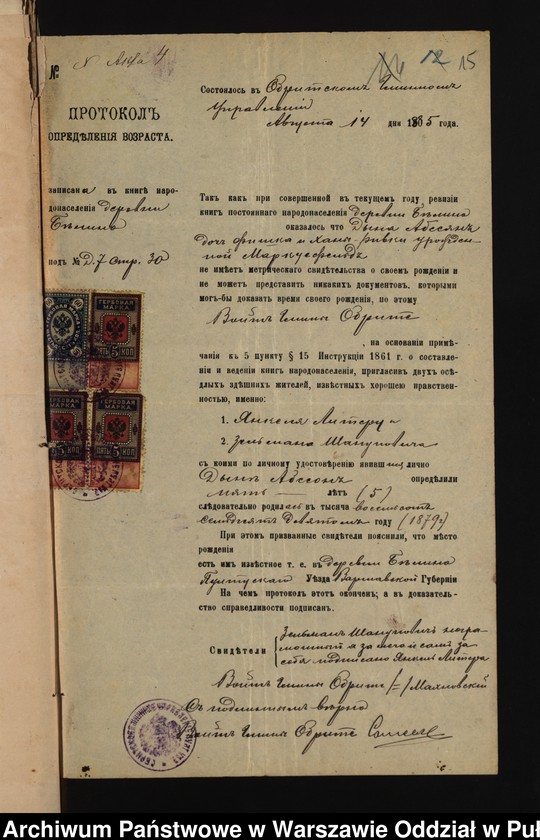 №
N Акта 4
12 15
ПРОТОКОЛЪ
ОПРЕДѢЛЕНІЯ ВОЗРАСТА.
Состоялось въ Обритскомъ Гминномъ
Управленіи
Августа 14 дня 1885 года.
записана въ книгѣ наро-
донаселенія деревни
подъ № Д. 7 стр. 30
Такъ какъ при совершенной въ текущемъ году, ревизіи
книгъ постояннаго народонаселенія деревни
оказалось что Дына Абесонъ
дочь Фишка и
не имѣетъ метрическаго свидѣтельства о своемъ рожденіи и
не можетъ представить никакихъ документовъ, которыми
могъ-бы доказать время своего рожденія, по этому
Войтъ Гмины Обрите
, на основаніи примѣ-
чанія къ 5 пункту § 15 Инструкціи 1861 г. о составленіи
и веденіи книгъ народонаселенія, пригласивъ двухъ осѣ-
длыхъ здѣшнихъ жителей, извѣстныхъ хорошею нравствен-
ностью, именно:
1. Янкеля Литера и
2. Зельмана Шануповича
съ коими по личному удостовѣренію явившейся лично
Дынѣ Абесонъ опредѣлили
пять — лѣтъ (5)
слѣдовательно родилась въ тысяча восемьсотъ
семьдесятъ девятомъ году (1879 г)
При этомъ призванные свидѣтели пояснили, что мѣсто
рожденія
есть имъ извѣстное т. е. въ деревни
Пултускаго Уѣзда Варшавской Губерніи
На чемъ протоколъ этотъ оконченъ; а въ доказатель-
ство справедливости подписанъ.
Свидѣтели
Зельманъ Шануповичъ негра-
мотный а за него и самъ за
себя подписано Янкель Литера
Войтъ Гмины Обрите /=/ Маяновскій
Съ подлиннымъ вѣрно
Войтъ Гмины Обрите
ГЕРБОВАЯ
МАРКА
ПЯТЬ 5 КОП
Archiwum Państwowe w Warszawie Oddział w Puł